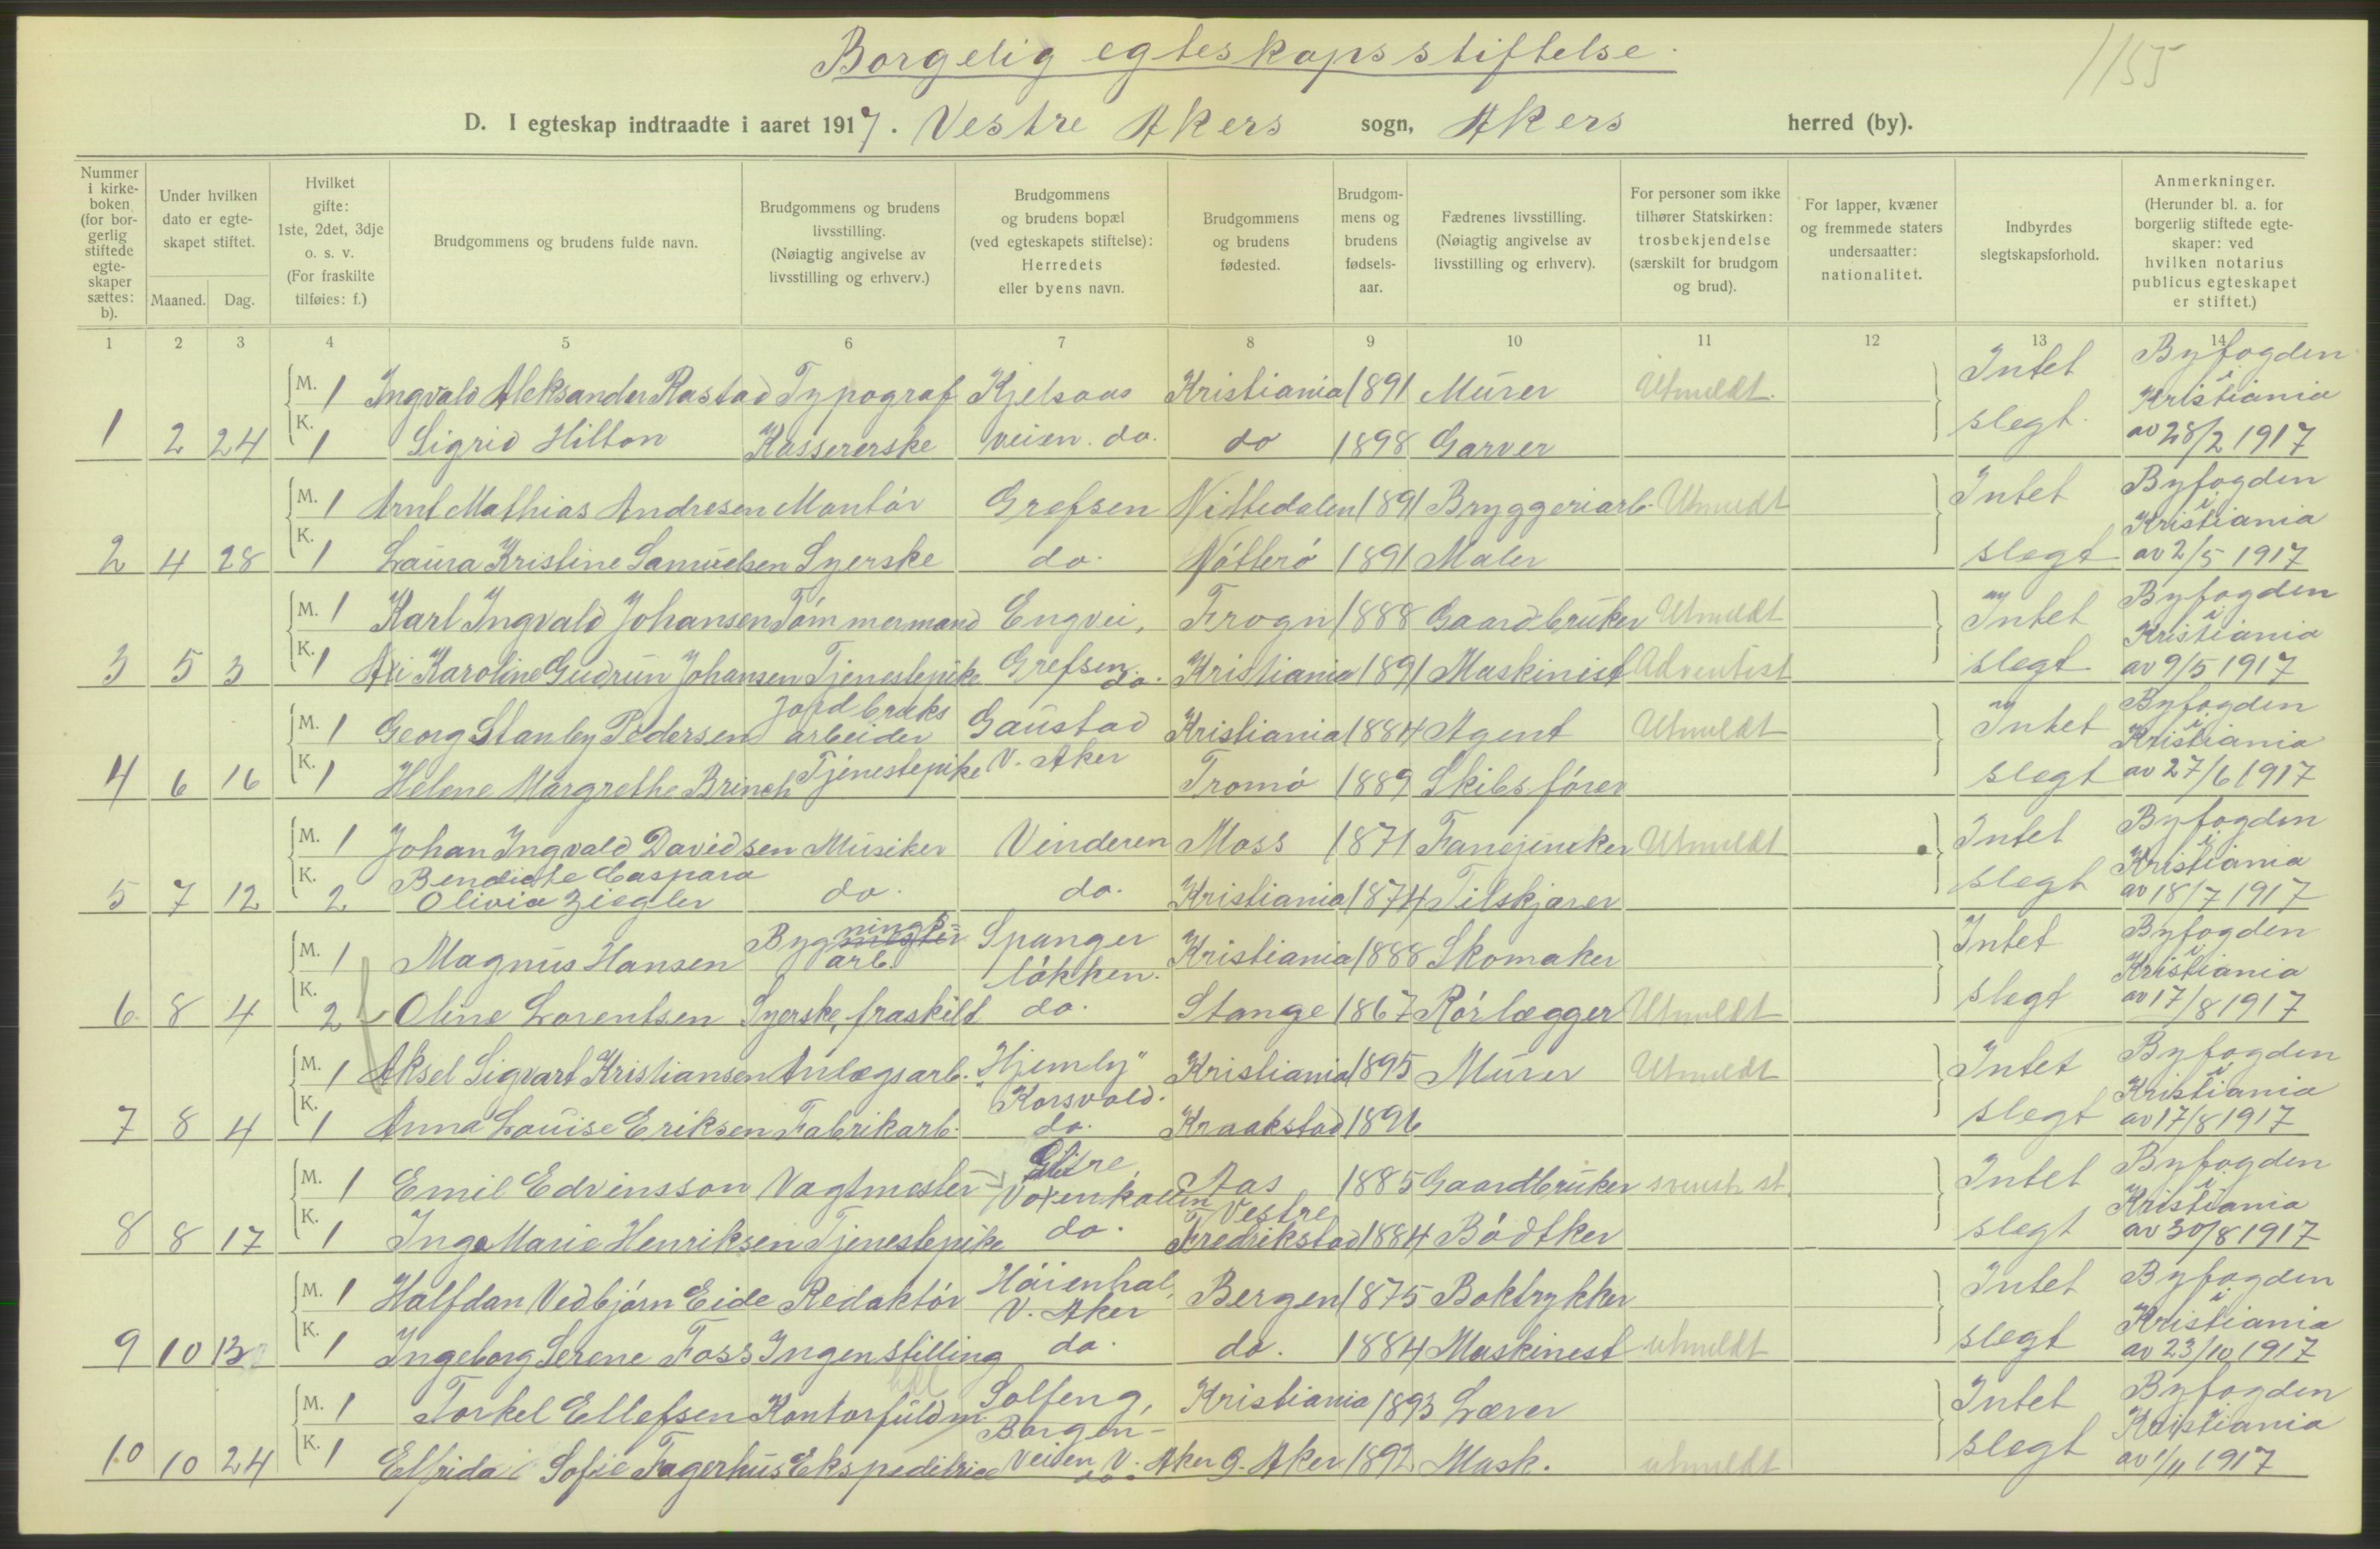 Borgelig egteskapsstiftelse.
1155
D. I egteskap indtraadte i aaret 1917. Vestre Akers sogn, Akers herred (by).
Nummer i kirkeboken (for borgerlig stiftede egteskaper sættes: b).
Under hvilken dato er egteskapet stiftet.
Maaned. Dag.
Hvilket gifte: 1ste, 2det, 3dje o. s. v. (For fraskilte tilføies: f.)
Brudgommens og brudens fulde navn.
Brudgommens og brudens livsstilling. (Nøiagtig angivelse av livsstilling og erhverv.)
Brudgommens og brudens bopæl (ved egteskapets stiftelse): Herredets eller byens navn.
Brudgommens og brudens fødested.
Brudgommens og brudens fødselsaar.
Fædrenes livsstilling. (Nøiagtig angivelse av livsstilling og erhverv).
For personer som ikke tilhører Statskirken: trosbekjendelse (særskilt for brudgom og brud).
For lapper, kvæner og fremmede staters undersaatter: nationalitet.
Indbyrdes slegtskapsforhold.
Anmerkninger. (Herunder bl. a. for borgerlig stiftede egteskaper: ved hvilken notarius publicus egteskapet er stiftet.)
1 2 3 4 5 6 7 8 9 10 11 12 13 14
M. 1 Ingvald Aleksander Rastad Typograf Kjelsaas Kristiania 1891 Murer Utmeldt. Intet Byfogden i Kristiania
1 2 24 K. 1 Sigrid Hilton Kassererske veien. do. do 1898 Garver slegt. av 28/2 1917
M. 1 Arnt Mathias Andresen Montör Grefsen Nittedalen 1891 Bryggeriarb. Utmeldt Intet Byfogden i Kristiania
2 4 28 K. 1 Laura Kristine Samuelsen Syerske do. Nötterö 1891 Maler slegt av 2/5 1917
M. 1 Karl Ingvald Johansen Tömmermand Engvei, Frogn 1888 Gaardbruker Utmeldt Intet Byfogden i Kristiania
3 5 3 K. 1 Karoline Gudrun Johansen Tjenestepike Grefsen do. Kristiania 1891 Maskinist Adventist slegt av 9/5 1917
M. 1 Georg Stanley Pedersen Jordbruks arbeider Gaustad Kristiania 1884 Agent Utmeldt Intet Byfogden i Kristiania
4 6 16 K. 1 Helene Margrethe Brinch Tjenestepike V. Aker Tromö 1889 Skibsförer slegt av 27/6 1917
M. 1 Johan Ingvald Davidsen Musiker Vinderen Moss 1871 Fanejunker Utmeldt Intet Byfogden i Kristiania
5 7 12 K. 2 Bendicte Caspara Olivia Ziegler do. do. Kristiania 1874 Tilskjærer slegt av 18/7 1917
M. 1 Magnus Hansen Bygnings arb. Spanger lökken. Kristiania 1888 Skomaker Intet Byfogden i Kristiania
6 8 4 K. 2 Oline Lorentsen Syerske, fraskilt do. Stange 1867 Rörlægger Utmeldt slegt av 17/8 1917
M. 1 Aksel Sigvart Kristiansen Anlægsarb. "Hjemly" Korsvold. Kristiania 1895 Murer Utmeldt Intet Byfogden i Kristiania
7 8 4 K. 1 Anna Louise Eriksen Fabrikarb. do. Kraakstad 1896 slegt av 17/8 1917
M. 1 Emil Edvinsson Vagtmester Voxenkollen Aas 1885 Gaardbruker svensk st. Intet Byfogden i Kristiania
8 8 17 K. 1 Inga Marie Henriksen Tjenestepike do. Vestre Fredrikstad 1884 Bödtker slegt av 30/8 1917
M. 1 Halfdan Vedbjörn Eide Redaktör Höienhal, V. Aker Bergen 1875 Boktrykker Intet Byfogden i Kristiania
9 10 13 K. 1 Ingeborg Serene Foss Ingen stilling do. do. 1884 Maskinist utmeldt slegt av 23/10 1917
M. 1 Torkel Ellefsen Kontorfuldm. Solfeng, Borgen- Kristiania 1893 Lærer Intet Byfogden i Kristiania
10 10 24 K. 1 Elfrida Sofie Fagerhus Ekspeditrice veien V. Aker do. Ø. Aker 1892 Mask. utmeldt slegt av 1/11 1917